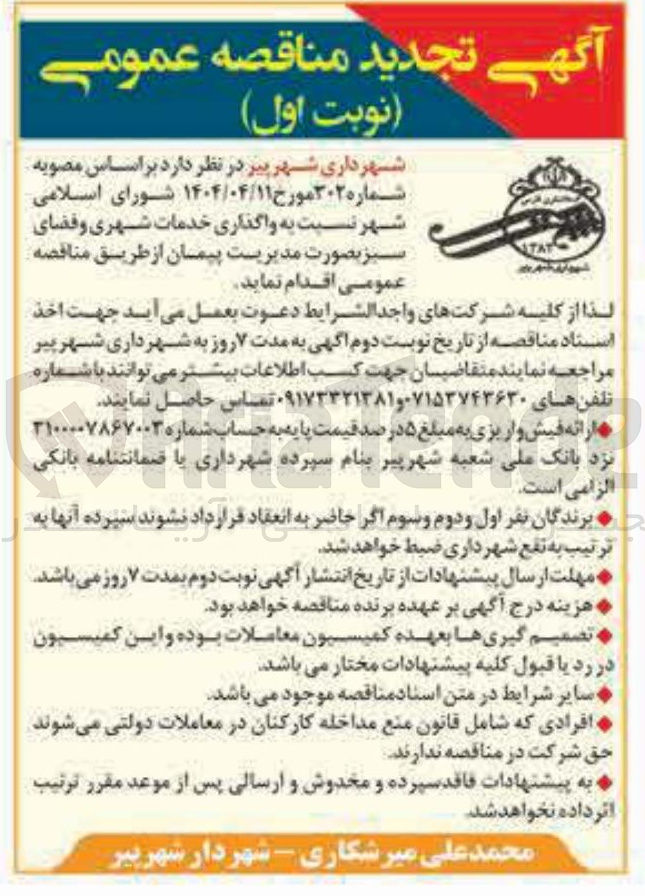 آگهی تجدید مناقصه عمومی
(نوبت اول)
شهرداری شهرپیر در نظر دارد براساس مصوبه
شماره ۳۰۲مورخ ۱۴۰۴/۰۴/۱۱ شورای اسلامی
شهر نسبت به واگذاری خدمات شهری وفضای
سبز بصورت مدیریت پیمان از طریق مناقصه
عمومی اقدام نماید.
۱۳۸۲
شهرداری شهرپیر
لذا از کلیه شرکت‌های واجدالشرایط دعوت بعمل می‌آید جهت اخذ
اسناد مناقصه از تاریخ نوبت دوم اگهی به مدت ۷روز به شهرداری شهرپیر
مراجعه نمایند متقاضیان جهت کسب اطلاعات بیشتر می توانند با شماره
تلفن‌های ۰۷۱۵۳۷۴۳۶۳۰و۰۹۱۷۳۳۲۱۳۸۱ تماس حاصل نمایند.
◆ارائه فیش واریزی به مبلغ ۵درصد قیمت پایه به حساب شماره ۳۱۰۰۰۰۷۸۶۷۰۰۳
نزد بانک ملی شعبه شهرپیر بنام سپرده شهرداری یا ضمانتنامه بانکی
الزامی است.
◆ برندگان نفر اول ودوم وسوم اگر حاضر به انعقاد قرارداد نشوند سپرده آنها به
ترتیب به نفع شهرداری ضبط خواهد شد.
◆مهلت ارسال پیشنهادات از تاریخ انتشار آگهی نوبت دوم بمدت ۷روز می باشد.
◆هزینه درج آگهی بر عهده برنده مناقصه خواهد بود.
◆ تصمیم گیری‌ها بعهده کمیسیون معاملات بوده و این کمیسیون
در رد یا قبول کلیه پیشنهادات مختار می باشد.
◆سایر شرایط در متن اسناد مناقصه موجود می باشد.
◆افرادی که شامل قانون منع مداخله کارکنان در معاملات دولتی می‌شوند
حق شرکت در مناقصه ندارند.
◆ به پیشنهادات فاقدسپرده و مخدوش و ارسالی پس از موعد مقرر ترتیب
اثر داده نخواهدشد.
محمدعلی میرشکاری – شهردار شهرپیر